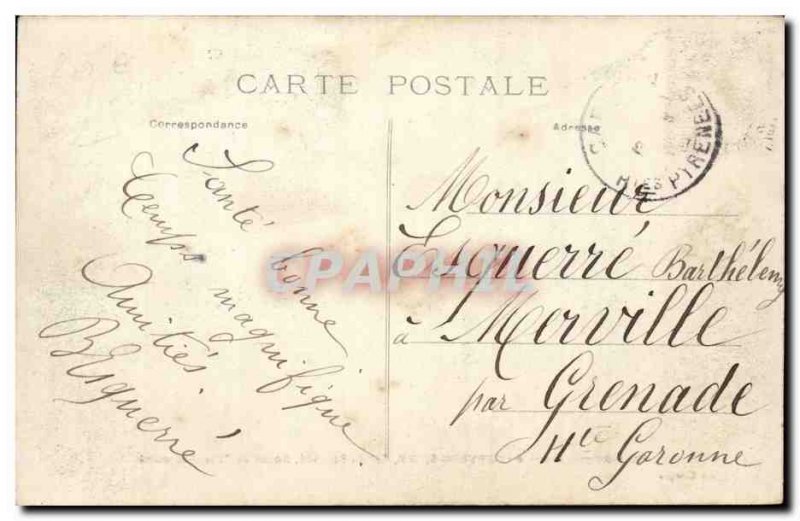 CARTE POSTALE
Correspondance
Adresse
Santé bonne
Temps magnifique
Amitiés.
BEsquerré
Monsieur
Esquerré Barthélemy
à Merville
par Grenade
Hte Garonne
Htes PYRENEES
CPAPHIL